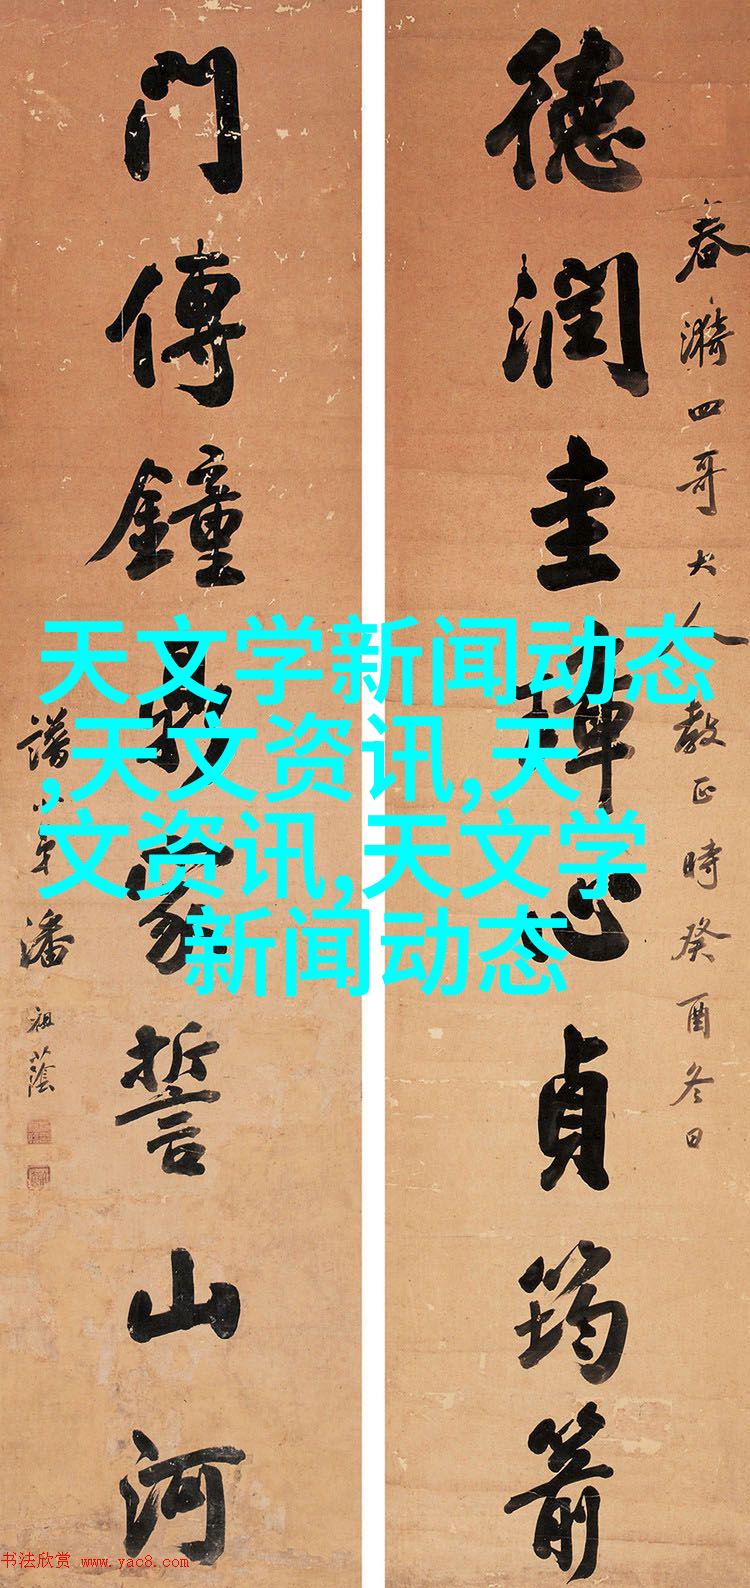 德潤圭璋心貞筠箭
春漪四哥大人教正時癸酉冬日
門傳鐘鼎家誓山河
譜小弟潘祖蔭
天文学新闻动态
,天文资讯,天
文资讯,天文学
新闻动态
书法欣赏 www.yac8.com